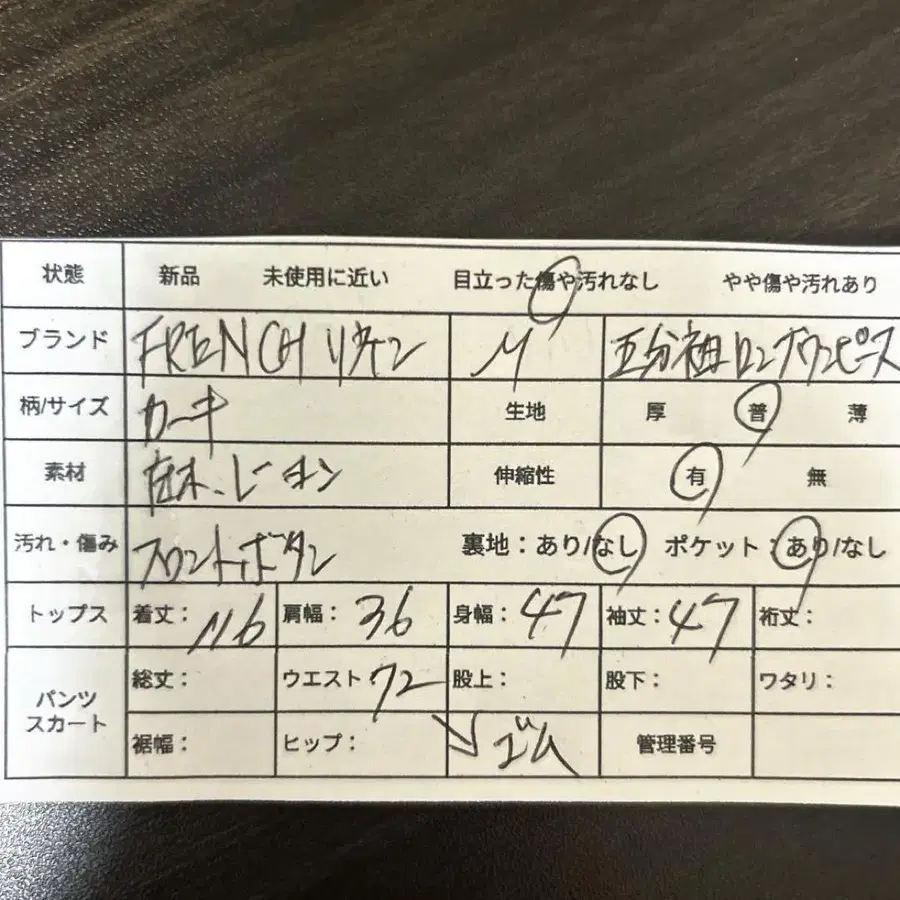 状態 新品 未使用に近い 目立った傷や汚れなし やや傷や汚れあり
ブランド FRENCH M 五分袖ロングワンピース
柄/サイズ カーキ 生地 厚 普 薄
素材 麻、レーヨン 伸縮性 有 無
汚れ・傷み フロントボタン 裏地：あり/なし ポケット：あり/なし
トップス 着丈：116 肩幅：36 身幅：47 袖丈：47 裄丈：
パンツ スカート
総丈： ウエスト 72 股上： 股下： ワタリ：
裾幅： ヒップ： ゴム 管理番号